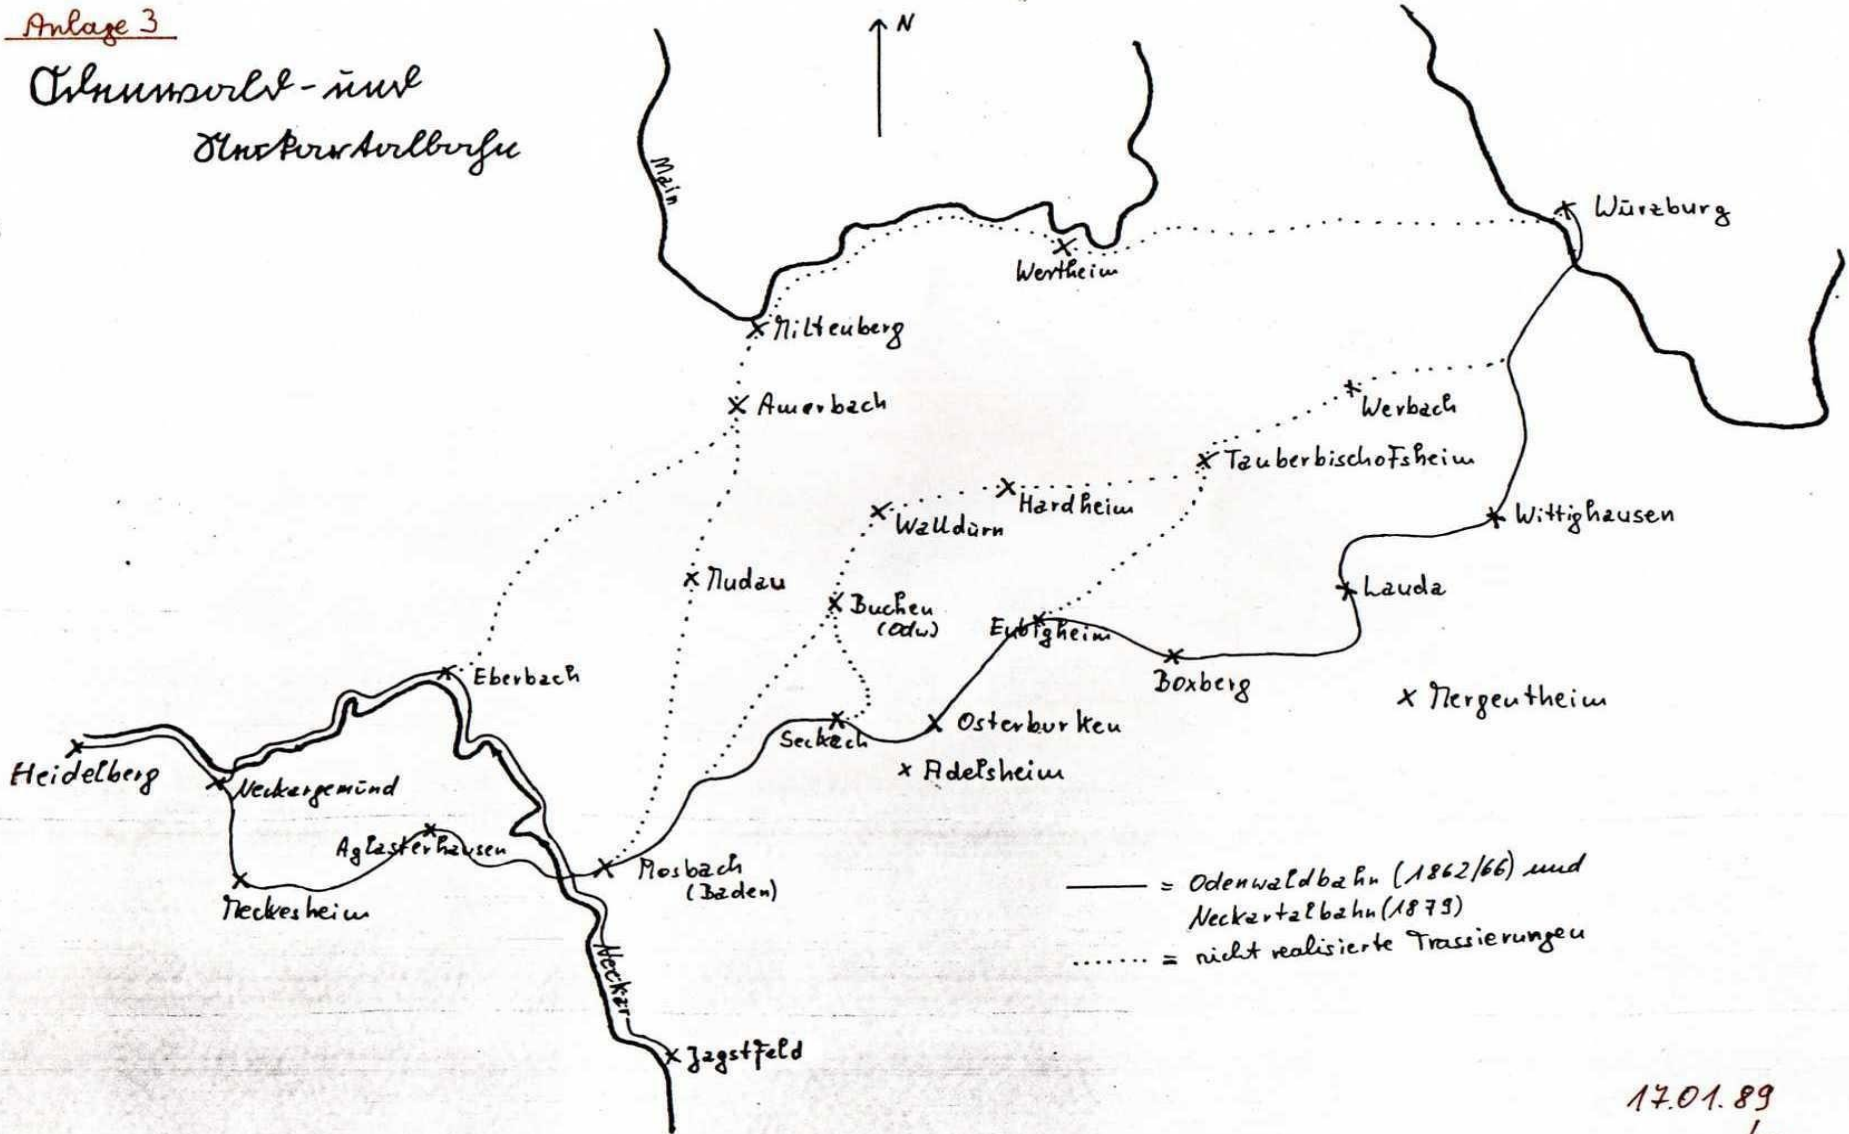 Anlage 3
Odenwald- und
Neckartalbahn
N
Main
Würzburg
Wertheim
Miltenberg
Amorbach
Werbach
Tauberbischofsheim
Hardheim
Walldürn
Wittighausen
Mudau
Buchen
(Odw)
Lauda
Eubigheim
Eberbach
Boxberg
Mergentheim
Osterburken
Seckach
Adelsheim
Heidelberg
Neckargemünd
Aglasterhausen
Mosbach
(Baden)
Meckesheim
——— = Odenwaldbahn (1862/66) und
Neckartalbahn (1879)
....... = nicht realisierte Trassierungen
Neckar
Jagstfeld
17.01.89